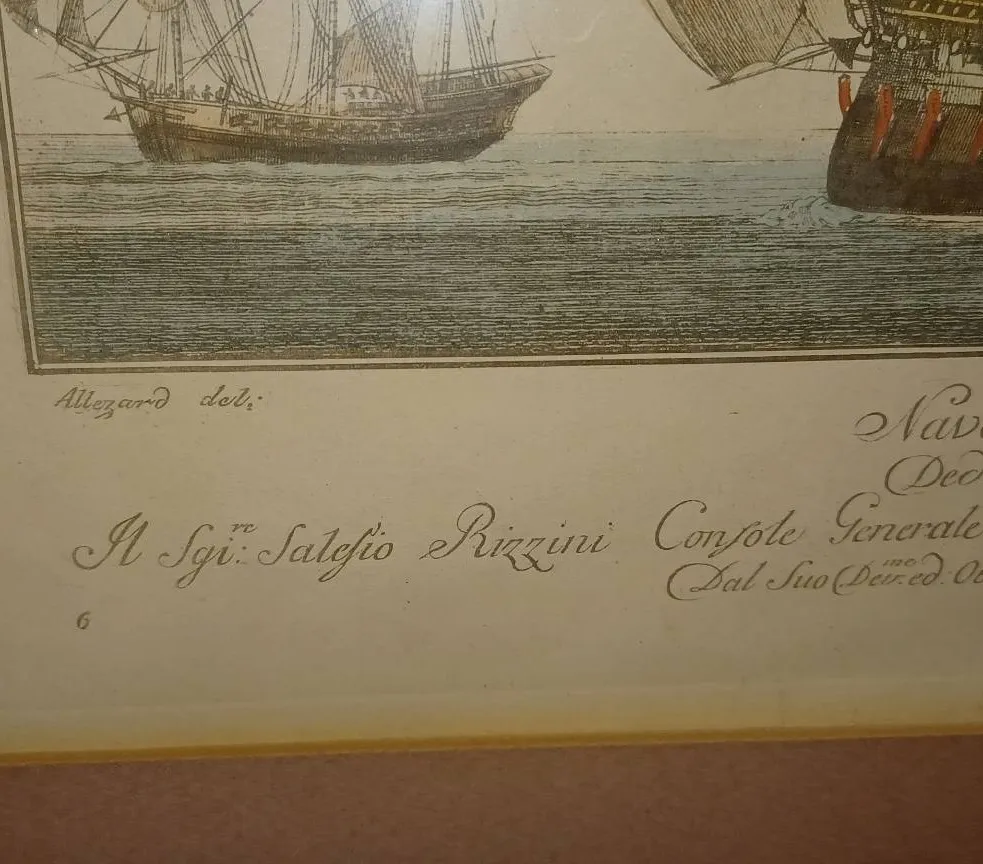 Allezard del:
Nav
Ded
Il Sgi.re: Salesio Rizzini Console Generale
Dal Suo Dev.mo ed: Ob
6